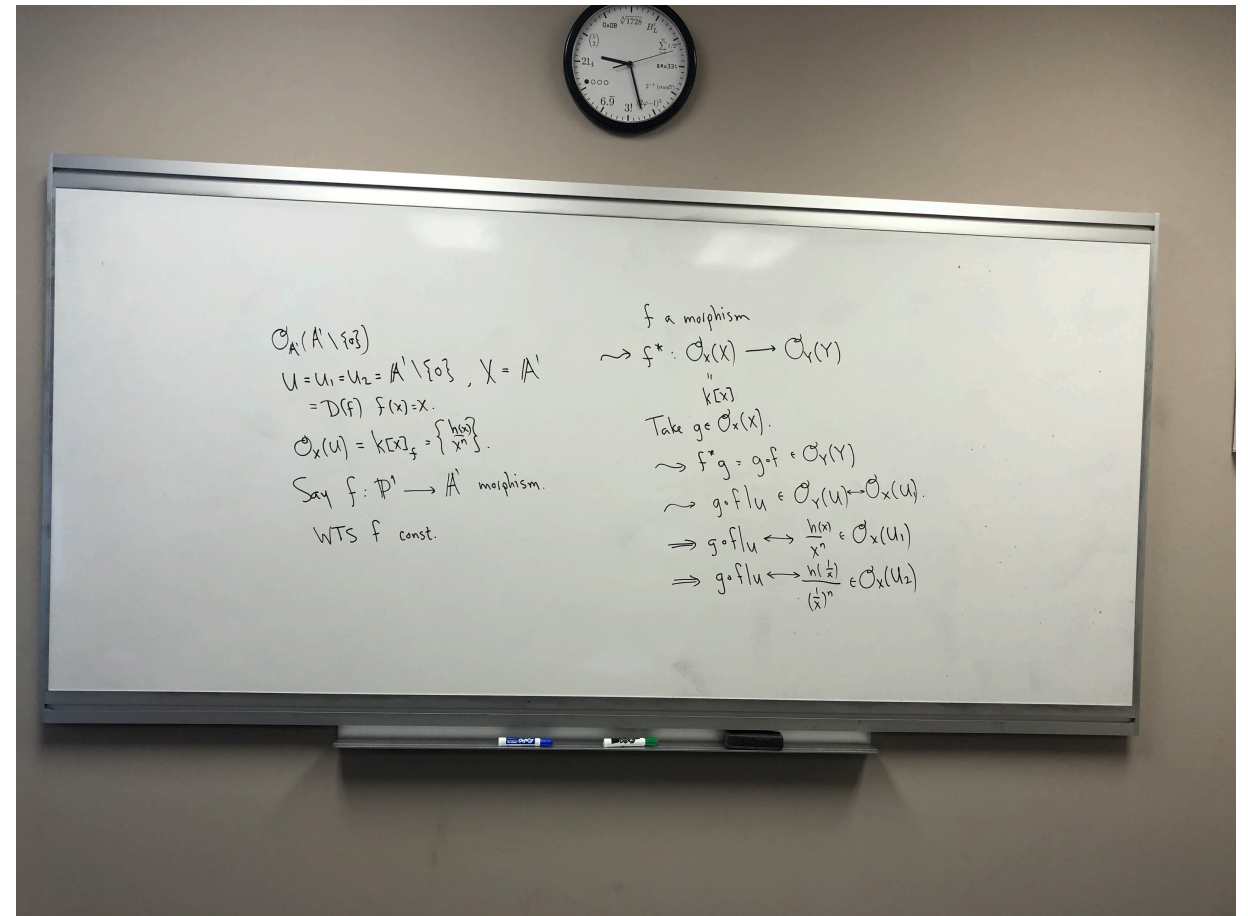 0x0B ∛1728 B'_L
21₄
6.9̅ 3! (2φ-1)²
O_{A¹}(A¹\{0})
U = U₁ = U₂ = A¹\{0}, X = A¹
= D(f) f(x)=x.
O_X(U) = k[x]_f = { h(x)/xⁿ }.
Say f: P¹ → A¹ morphism.
WTS f const.
f a morphism
⇝ f* : O_X(X) → O_Y(Y)
"
k[x]
Take g ∈ O_X(X).
⇝ f*g = g∘f ∈ O_Y(Y)
⇝ g∘f|u ∈ O_Y(U) ↔ O_X(U).
⇒ g∘f|u ↔ h(x)/xⁿ ∈ O_X(U₁)
⇒ g∘f|u ↔ h(1/x)/(1/x)ⁿ ∈ O_X(U₂)
EXPO